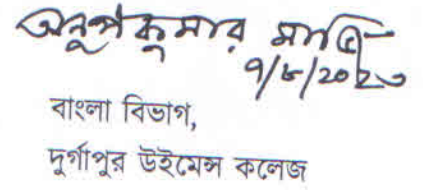 অনুপকুমার মাজি
৭/৮/২০২৩
বাংলা বিভাগ,
দুর্গাপুর উইমেন্স কলেজ